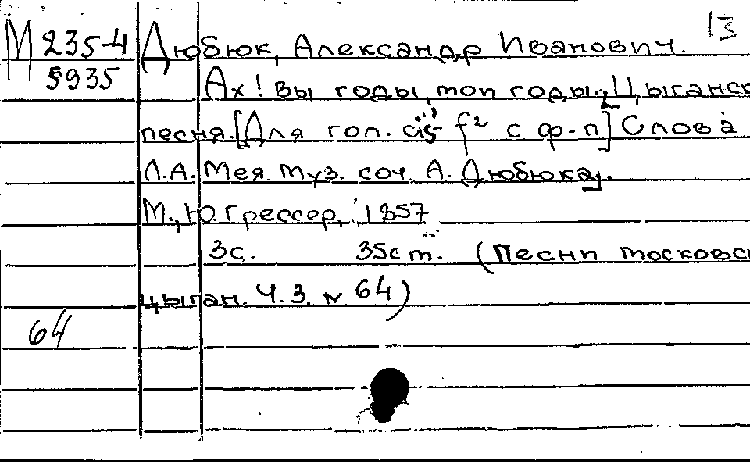 13
М 235-4
5935
Дюбюк, Александр Иванович.
Ах! вы годы, мои годы. Цыганск
песня. [Для гол. cis¹ f² с ф-п] Слова
Л.А. Мея. Муз. соч. А. Дюбюка.
М., Ю. Грессер, 1857
3с. 35см. (Песни московск
цыган. Ч.3. № 64)
64